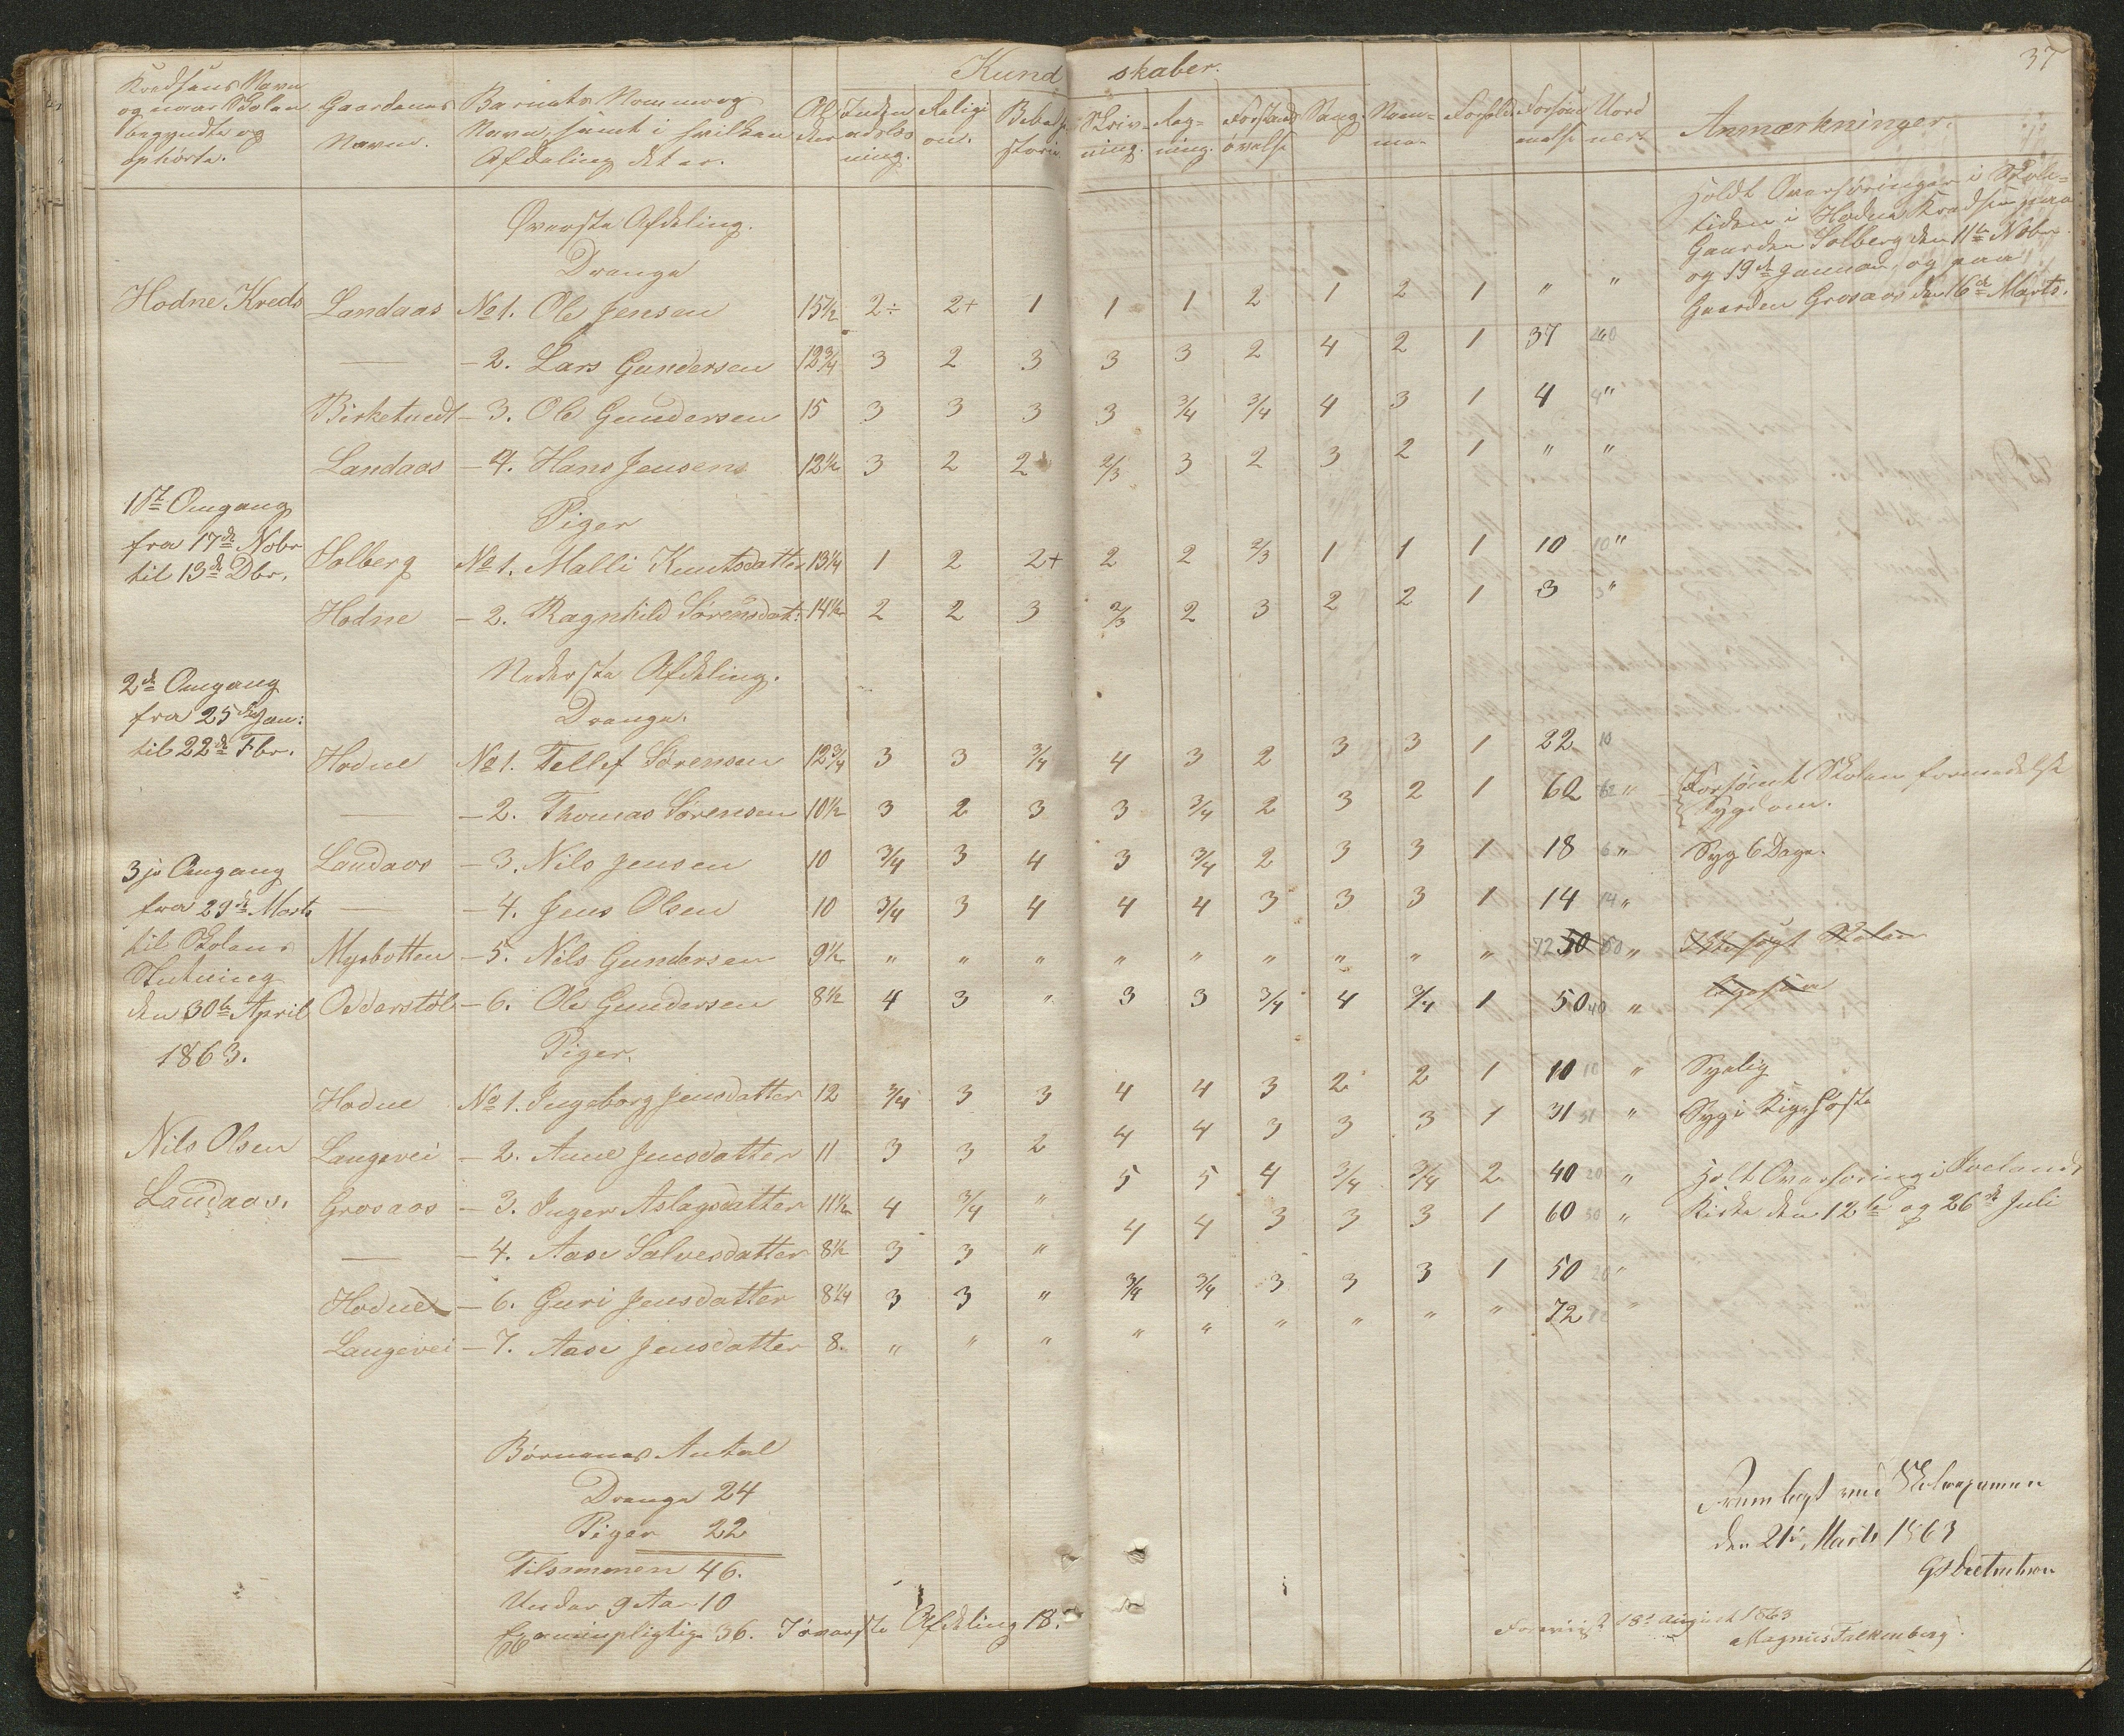 37
Kund skaber.
Kredsens Navn og naar Skolen begyndte og ophörte.
Gaardenes Navn.
Barnets Nommer og Navn, samt i hvilken Afdeling det er.
Al der
Inden adslæs ning.
Religi on.
Bibelhi storie
Skriv- ning.
Reg- ning.
Forstands övelse
Sang.
Nem- me.
Forhold
Forsöm melse
Anmærkninger.
Øverste Afdeling.
Drenge
Holdt Overhöringer i Skole-
tiden i Hodne Kredsen paa
Gaarden Solberg den 11te Nobr
og 19de Januar, og paa
Gaarden Grosaas den 16de Marts.
Hodne Kreds Landaas No 1. Ole Jensen 15½ 2÷ 2+ 1 1 1 2 1 2 1 " "
— - 2. Lars Gundersen 12¾ 3 2 3 3 3 2 4 2 1 37
Birketuedt - 3. Ole Gundersen 15 3 3 3 3 3/4 3/4 4 3 1 4 4 "
Landaas - 4. Hans Jensen 12½ 3 2 2 2/3 3 2 3 2 1 " "
1ste Omgang
fra 17de Nobr
til 13de Dbr.
Piger
Solberg No 1. Malli Knutsdatter 13¼ 1 2 2+ 2 2 2/3 1 1 1 10 10 "
Hodne - 2. Ragnhild Sörensdat: 14½ 2 2 3 2/3 2 3 2 2 1 3 3 "
Nederste Afdeling.
Drenge.
2de Omgang
fra 25de Jan:
til 22de Fbr.
Hodne No 1. Tellef Sörensen 12¾ 3 3 3/4 4 3 2 3 3 1 22 10
— - 2. Thomas Sörensen 10½ 3 2 3 3 3/4 2 3 2 1 62 62 " Forsömt Skolen formedelst
Sygdom.
3je Omgang
fra 29de Marts
til Skolens
Slutning
den 30te April
1863.
Landaas - 3. Nils Jensen 10 3/4 3 4 3 3/4 2 3 3 1 18 6 " Syg 6 Dage.
— - 4. Jens Olsen 10 3/4 3 4 4 4 3 3 3 1 14 14 "
Myrbotten - 5. Nils Gundersen 9½ " " " " " " " " " 72 50 50 " Ikke sögt Skolen
Odderstöl - 6. Ole Gundersen 8½ 4 3 " 3 3 3/4 4 3/4 1 50 40 " ligesaa
Piger.
Hodne No 1. Ingeborg Jensdatter 12 3/4 3 3 4 4 3 2 2 1 10 10 " Syelig
Nils Olsen
Landaas.
Langevei - 2. Anne Jensdatter 11 3 3 2 4 4 3 3 3 1 31 31 " Syg i Kighoste
Grosaas - 3. Inger Aslagsdatter 11½ 4 3/4 " 5 5 4 3/4 3/4 2 40 20 " Holt Overhöring i Ivelands
Kirke den 12te og 26de Juli
— - 4. Aase Salvesdatter 8½ 3 3 " 4 4 3 3 3 1 60 30 "
Hodne - 6. Guri Jensdatter 8¼ 3 3 " 3/4 3/4 3 3 3 1 50 20 "
Langevei - 7. Aase Jensdatter 8. " " " " " " " " " 72 "
Börnenes Antal
Drenge 24
Piger 22
Tilsammen 46.
Under 9 Aar 10
Examenpligtige 36. I överste Afdeling 18.
Fremlagt ved Skoleexamen
den 21de Marts 1863
Foreviist 18de August 1863
Magnus Falkenberg.